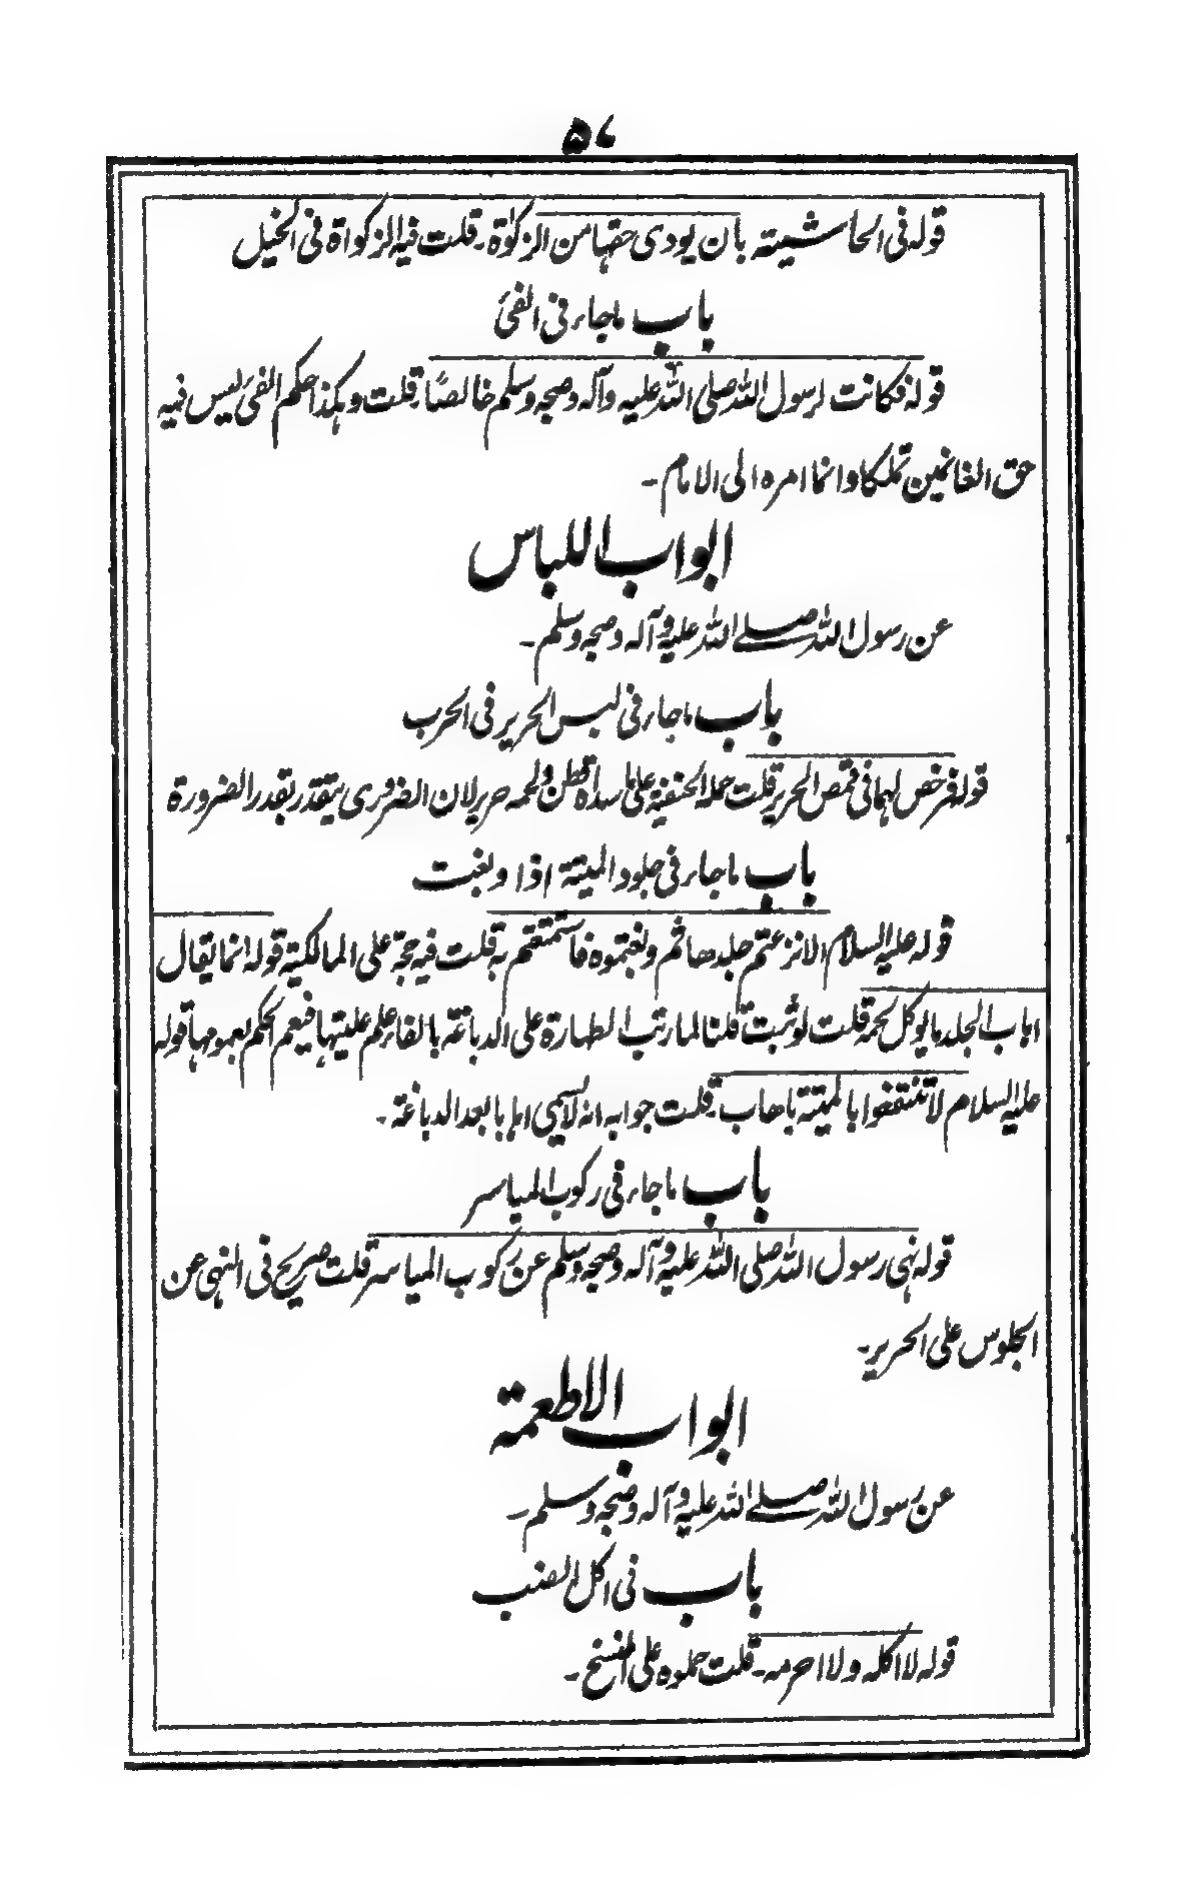 ۵۷
قوله فی الحاشیته بان یودی حقها من الزکوٰة۔ قلت فیه الزکواة فی الخیل
باب ماجاء فی الفئ
قوله فکانت لرسول الله صلی الله علیه وآله وصحبه وسلم خالصًا۔ قلت وهکذا حکم الفئ لیس فیه
حق الغانمین تملکا وانما امره الی الامام۔
ابواب اللباس
عن رسول الله صلے الله علیه وآله وصحبه وسلم۔
باب ماجاء فی لبس الحریر فی الحرب
قوله فرخص لهما فی قمص الحریر قلت حمله الحنفیة علی ما سداه قطن ولحمه حریر لان الضروری یتقدر بقدر الضرورة
باب ماجاء فی جلود المیتة اذا دبغت
قوله علیه السلام الا نزعتم جلدها ثم دبغتموه فاستمتعتم به قلت فیه حجة علی المالکیة قوله انما یقال
اهاب الجلد ما یوکل لحمه قلت لو ثبت قلنا لما رتب الطهارة علی الدباغة بالفاء علم علیتها فیعم الحکم بعمومها قوله
علیه السلام لا تنتفعوا بالمیتة باهاب۔ قلت جوابه انه لا یسمی اهابا بعد الدباغة۔
باب ماجاء فی رکوب المیاسر
قوله نهی رسول الله صلی الله علیه وآله وصحبه وسلم عن رکوب المیاسر قلت صریح فی النهی عن
الجلوس علی الحریر۔
ابواب الاطعمة
عن رسول الله صلے الله علیه وآله وصحبه وسلم۔
باب فی اکل الضب
قوله لا اکله ولا احرمه۔ قلت حملوه علی النسخ۔